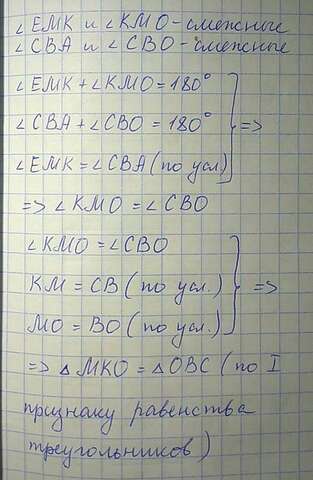 ∠EMK и ∠KMO - смежные
∠CBA и ∠CBO - смежные
∠EMK + ∠KMO = 180°
∠CBA + ∠CBO = 180° } =>
∠EMK = ∠CBA (по усл.)
=> ∠KMO = ∠CBO
∠KMO = ∠CBO
KM = CB (по усл.) } =>
MO = BO (по усл.)
=> △MKO = △OBC (по I
признаку равенства
треугольников)